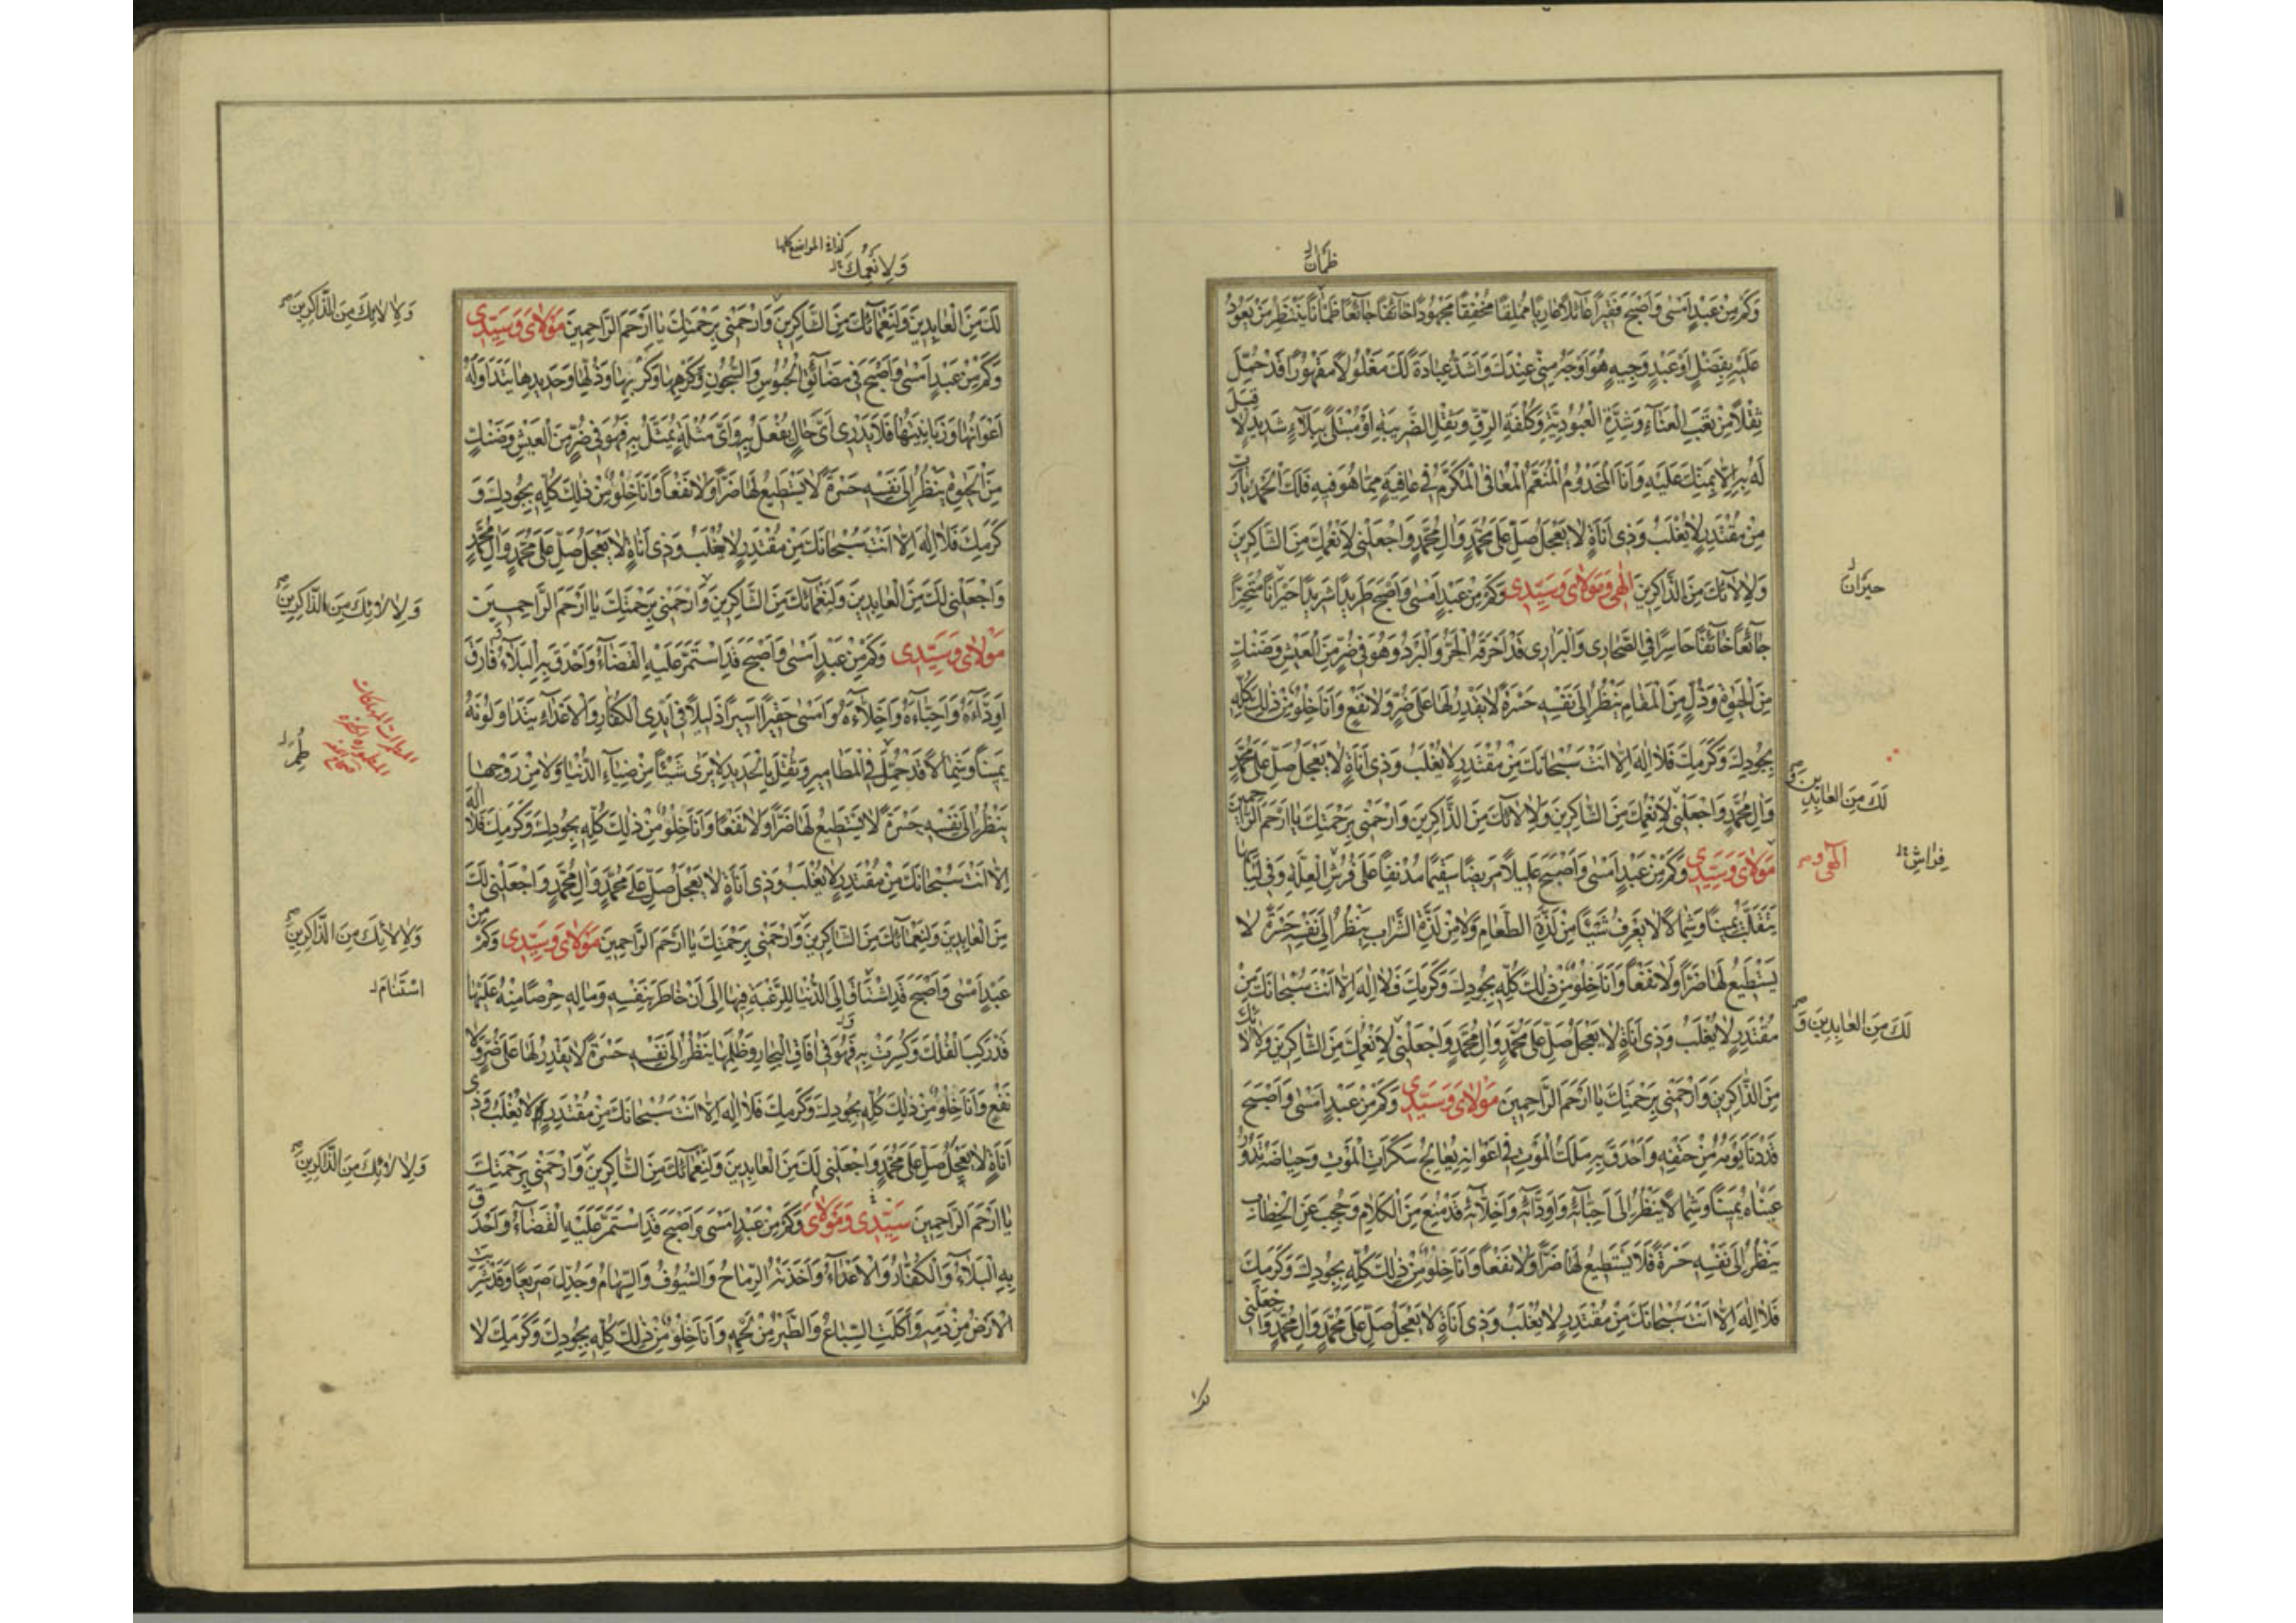 ظمآن
وَكَمْ مِنْ عَبْدٍ اَمْسىٰ وَاَصْبَحَ فَقيرًا عآئلًا عارِيًا مُمْلِقًا مُخْفِقًا مَجْهُودًا خآئفًا جآئعًا ظَمْاٰنًا يَنْتَظِرُ مَنْ يَعُودُ
عَلَيْهِ بِفَضْلٍ اَوْ عَبْدٍ وَجيهٍ هُوَ اَوْجَهُ مِنّى عِنْدَكَ وَاَشَدُّ عِبادَةً لَكَ مَغْلُولًا مَقْهُورًا قَدْ حُمِّلَ
ثِقْلًا مِنْ تَعَبِ الْعَنآءِ وَشِدَّةِ الْعُبُودِيَّةِ وَكُلْفَةِ الرِّقِّ وَثِقْلِ الضَّريبَةِ اَوْ مُبْتَلىً بِبَلآءٍ شَديدٍ لا قِبَلَ
لَهُ بِهِ اِلّا بِمَنِّكَ عَلَيْهِ وَاَنَا الْمَخْدُومُ الْمُنَعَّمُ الْمُعافَى الْمُكَرَّمُ فى عافِيَةٍ مِمّا هُوَ فيهِ فَلَكَ الْحَمْدُ يا رَبِّ
مِنْ مُقْتَدِرٍ لا يُغْلَبُ وَذى اَناةٍ لا يَعْجَلُ صَلِّ عَلىٰ مُحَمَّدٍ وَاٰلِ مُحَمَّدٍ وَاجْعَلْنى لِاَنْعُمِكَ مِنَ الشّاكِرينَ
وَلِاٰلآئكَ مِنَ الذّاكِرينَ اِلٰهى وَمَوْلاىَ وَسَيِّدى وَكَمْ مِنْ عَبْدٍ اَمْسىٰ وَاَصْبَحَ طَريدًا شَريدًا حَيْرانًا مُتَحَيِّرًا
حيران
جآئعًا خآئفًا حاسِرًا فِى الصَّحارى وَالْبَرارى قَدْ اَحْرَقَهُ الْحَرُّ وَالْبَرْدُ وَهُوَ فى ضُرٍّ مِنَ الْعَيْشِ وَضَنْكٍ
مِنَ الْحَيٰوةِ وَذُلٍّ مِنَ الْمَقامِ يَنْظُرُ اِلىٰ نَفْسِهِ حَسْرَةً لا يَقْدِرُ لَها عَلىٰ ضُرٍّ وَلا نَفْعٍ وَاَنَا خِلْوٌ مِنْ ذٰلِكَ كُلِّهِ
بِجُودِكَ وَكَرَمِكَ فَلا اِلٰهَ اِلّا اَنْتَ سُبْحانَكَ مِنْ مُقْتَدِرٍ لا يُغْلَبُ وَذى اَناةٍ لا يَعْجَلُ صَلِّ عَلىٰ مُحَمَّدٍ
وَاٰلِ مُحَمَّدٍ وَاجْعَلْنى لِاَنْعُمِكَ مِنَ الشّاكِرينَ وَلِاٰلآئكَ مِنَ الذّاكِرينَ وَارْحَمْنى بِرَحْمَتِكَ يا اَرْحَمَ الرّاحِمينَ
لَكَ مِنَ العٰابِدينَ وَ
مَوْلاىَ وَسَيِّدى وَكَمْ مِنْ عَبْدٍ اَمْسىٰ وَاَصْبَحَ عَليلًا مَريضًا سَقيمًا مُدْنِفًا عَلىٰ فُرُشِ الْعِلَّةِ وَفى لِباسِها
اِلٰهى وَ
فِراشِ
يَتَقَلَّبُ يَمينًا وَشِمالًا لا يَعْرِفُ شَيْئًا مِنْ لَذَّةِ الطَّعامِ وَلا مِنْ لَذَّةِ الشَّرابِ يَنْظُرُ اِلىٰ نَفْسِهِ حَسْرَةً لا
يَسْتَطيعُ لَها ضَرًّا وَلا نَفْعًا وَاَنَا خِلْوٌ مِنْ ذٰلِكَ كُلِّهِ بِجُودِكَ وَكَرَمِكَ فَلا اِلٰهَ اِلّا اَنْتَ سُبْحانَكَ مِنْ
مُقْتَدِرٍ لا يُغْلَبُ وَذى اَناةٍ لا يَعْجَلُ صَلِّ عَلىٰ مُحَمَّدٍ وَاٰلِ مُحَمَّدٍ وَاجْعَلْنى لِاَنْعُمِكَ مِنَ الشّاكِرينَ وَلِاٰلآئكَ
لَكَ مِنَ العابِدينَ وَ
مِنَ الذّاكِرينَ وَارْحَمْنى بِرَحْمَتِكَ يا اَرْحَمَ الرّاحِمينَ مَوْلاىَ وَسَيِّدى وَكَمْ مِنْ عَبْدٍ اَمْسىٰ وَاَصْبَحَ
قَدْ دَنا يَوْمُهُ مِنْ حَتْفِهِ وَاَحْدَقَ بِهِ مَلَكُ الْمَوْتِ فى اَعْوانِهِ يُعالِجُ سَكَراتِ الْمَوْتِ وَحِياضَهُ تَدُورُ
عَيْناهُ يَمينًا وَشِمالًا يَنْظُرُ اِلىٰ اَحِبّآئهِ وَاَوِدّآئهِ وَاَخِلّآئهِ قَدْ مُنِعَ مِنَ الْكَلامِ وَحُجِبَ عَنِ الْخِطابِ
يَنْظُرُ اِلىٰ نَفْسِهِ حَسْرَةً فَلا يَسْتَطيعُ لَها ضَرًّا وَلا نَفْعًا وَاَنَا خِلْوٌ مِنْ ذٰلِكَ كُلِّهِ بِجُودِكَ وَكَرَمِكَ
فَلا اِلٰهَ اِلّا اَنْتَ سُبْحانَكَ مِنْ مُقْتَدِرٍ لا يُغْلَبُ وَذى اَناةٍ لا يَعْجَلُ صَلِّ عَلىٰ مُحَمَّدٍ وَاٰلِ مُحَمَّدٍ وَاجْعَلْنى
كذا فى المواضع كلها
وَلِاَنْعُمِكَ
لَكَ مِنَ الْعابِدينَ وَلِنَعْمآئكَ مِنَ الشّاكِرينَ وَارْحَمْنى بِرَحْمَتِكَ يا اَرْحَمَ الرّاحِمينَ مَوْلاىَ وَسَيِّدى
وَلِاٰلائِكَ مِنَ الذّاكِرينَ
وَكَمْ مِنْ عَبْدٍ اَمْسىٰ وَاَصْبَحَ فى مَضآئقِ الْحُبُوسِ وَالسُّجُونِ وَكَرْهِها وَكَرْبِها وَذُلِّها وَحَديدِها يَتَداوَلُهُ
اَعْوانُها وَزَبانِيَتُها فَلا يَدْرى اَىُّ حالٍ يُفْعَلُ بِهِ وَاَىُّ مُثْلَةٍ يُمَثَّلُ بِهِ فَهُوَ فى ضُرٍّ مِنَ الْعَيْشِ وَضَنْكٍ
مِنَ الْحَيٰوةِ يَنْظُرُ اِلىٰ نَفْسِهِ حَسْرَةً لا يَسْتَطيعُ لَها ضَرًّا وَلا نَفْعًا وَاَنَا خِلْوٌ مِنْ ذٰلِكَ كُلِّهِ بِجُودِكَ وَ
كَرَمِكَ فَلا اِلٰهَ اِلّا اَنْتَ سُبْحانَكَ مِنْ مُقْتَدِرٍ لا يُغْلَبُ وَذى اَناةٍ لا يَعْجَلُ صَلِّ عَلىٰ مُحَمَّدٍ وَاٰلِ مُحَمَّدٍ
وَاجْعَلْنى لَكَ مِنَ الْعابِدينَ وَلِنَعْمآئكَ مِنَ الشّاكِرينَ وَارْحَمْنى بِرَحْمَتِكَ يا اَرْحَمَ الرّاحِمينَ
وَلِاٰلائِكَ مِنَ الذّاكِرينَ
مَوْلاىَ وَسَيِّدى وَكَمْ مِنْ عَبْدٍ اَمْسىٰ وَاَصْبَحَ قَدِ اسْتَمَرَّ عَلَيْهِ الْقَضآءُ وَاَحْدَقَ بِهِ الْبَلآءُ فارَقَ
اَوِدّآءَهُ وَاَحِبّآءَهُ وَاَخِلّآءَهُ وَاَمْسىٰ حَقيرًا اَسيرًا ذَليلًا فى اَيْدِى الْكُفّارِ وَالْاَعْدآءِ يَتَداوَلُونَهُ
يَمينًا وَشِمالًا قَدْ حُمِّلَ فِى الْمَطاميرِ وَثُقِّلَ بِالْحَديدِ لا يَرىٰ شَيْئًا مِنْ ضِيآءِ الدُّنْيا وَلا مِنْ رَوْحِها
طُمِرَ
يَنْظُرُ اِلىٰ نَفْسِهِ حَسْرَةً لا يَسْتَطيعُ لَها ضَرًّا وَلا نَفْعًا وَاَنَا خِلْوٌ مِنْ ذٰلِكَ كُلِّهِ بِجُودِكَ وَكَرَمِكَ فَلا اِلٰهَ
اِلّا اَنْتَ سُبْحانَكَ مِنْ مُقْتَدِرٍ لا يُغْلَبُ وَذى اَناةٍ لا يَعْجَلُ صَلِّ عَلىٰ مُحَمَّدٍ وَاٰلِ مُحَمَّدٍ وَاجْعَلْنى لَكَ
مِنَ الْعابِدينَ وَلِنَعْمآئكَ مِنَ الشّاكِرينَ وَارْحَمْنى بِرَحْمَتِكَ يا اَرْحَمَ الرّاحِمينَ مَوْلاىَ وَسَيِّدى وَكَمْ مِنْ
وَلِاٰلائِكَ مِنَ الذّاكِرينَ
عَبْدٍ اَمْسىٰ وَاَصْبَحَ قَدِ اشْتاقَ اِلَى الدُّنْيا لِلرَّغْبَةِ فيها اِلىٰ اَنْ خاطَرَ بِنَفْسِهِ وَمالِهِ حِرْصًا مِنْهُ عَلَيْها
قَدْ رَكِبَ الْفُلْكَ وَكُسِرَتْ بِهِ فَهُوَ فى اٰفاقِ الْبِحارِ وَظُلَمِها يَنْظُرُ اِلىٰ نَفْسِهِ حَسْرَةً لا يَقْدِرُ لَها عَلىٰ ضُرٍّ وَلا
نَفْعٍ وَاَنَا خِلْوٌ مِنْ ذٰلِكَ كُلِّهِ بِجُودِكَ وَكَرَمِكَ فَلا اِلٰهَ اِلّا اَنْتَ سُبْحانَكَ مِنْ مُقْتَدِرٍ لا يُغْلَبُ وَذى
اَناةٍ لا يَعْجَلُ صَلِّ عَلىٰ مُحَمَّدٍ وَاجْعَلْنى لَكَ مِنَ الْعابِدينَ وَلِنَعْمآئكَ مِنَ الشّاكِرينَ وَارْحَمْنى بِرَحْمَتِكَ
وَلِاٰلائِكَ مِنَ الذّاكِرينَ
يا اَرْحَمَ الرّاحِمينَ سَيِّدى وَمَوْلاىَ وَكَمْ مِنْ عَبْدٍ اَمْسىٰ وَاَصْبَحَ قَدِ اسْتَمَرَّ عَلَيْهِ الْقَضآءُ وَاَحْدَقَ
بِهِ الْبَلآءُ وَالْكُفّارُ وَالْاَعْدآءُ وَاَخَذَتْهُ الرِّماحُ وَالسُّيُوفُ وَالسِّهامُ وَجُدِّلَ صَريعًا وَقَدْ شَرِبَتِ
الْاَرْضُ مِنْ دَمِهِ وَاَكَلَتِ السِّباعُ وَالطَّيْرُ مِنْ لَحْمِهِ وَاَنَا خِلْوٌ مِنْ ذٰلِكَ كُلِّهِ بِجُودِكَ وَكَرَمِكَ لا